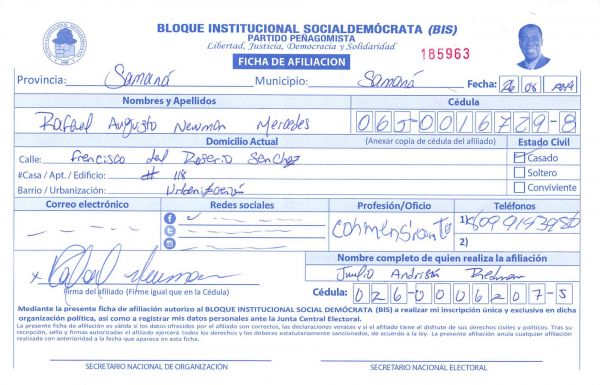 BLOQUE INSTITUCIONAL SOCIALDEMÓCRATA (BIS)
PARTIDO PEÑAGOMISTA
Libertad, Justicia, Democracia y Solidaridad
FICHA DE AFILIACION
185963
Provincia: Samaná Municipio: Samaná Fecha: 26 08
Nombres y Apellidos Cédula
Rafael Augusto Newman Mercedes 065-0016729-8
Domicilio Actual (Anexar copia de cédula del afiliado) Estado Civil
Calle: Francisco del Rosario Sanchez Casado
#Casa / Apt. / Edificio: # 118 Soltero
Barrio / Urbanización: Conviviente
Correo electrónico Redes sociales Profesión/Oficio Teléfonos
1) 8099193980
2)
Rafael Newman
Firma del afiliado (Firme igual que en la Cédula)
Nombre completo de quien realiza la afiliación
Cédula: 026-0006207-5
Mediante la presente ficha de afiliación autorizo al BLOQUE INSTITUCIONAL SOCIAL DEMÓCRATA (BIS) a realizar mi inscripción única y exclusiva en dicha
organización política, así como a registrar mis datos personales ante la Junta Central Electoral.
La presente ficha de afiliación es válida si los datos ofrecidos por el afiliado son correctos, las declaraciones veraces y si el afiliado tiene el disfrute de sus derechos civiles y políticos. Tras su
recepción, sello y firmas autorizadas el afiliado ejercerá todos los derechos y los deberes estatutariamente sancionados, de acuerdo a la ley. La presente afiliación anula cualquier afiliación
realizada con anterioridad a la fecha que aparece en esta ficha.
SECRETARIO NACIONAL DE ORGANIZACIÓN SECRETARIO NACIONAL ELECTORAL